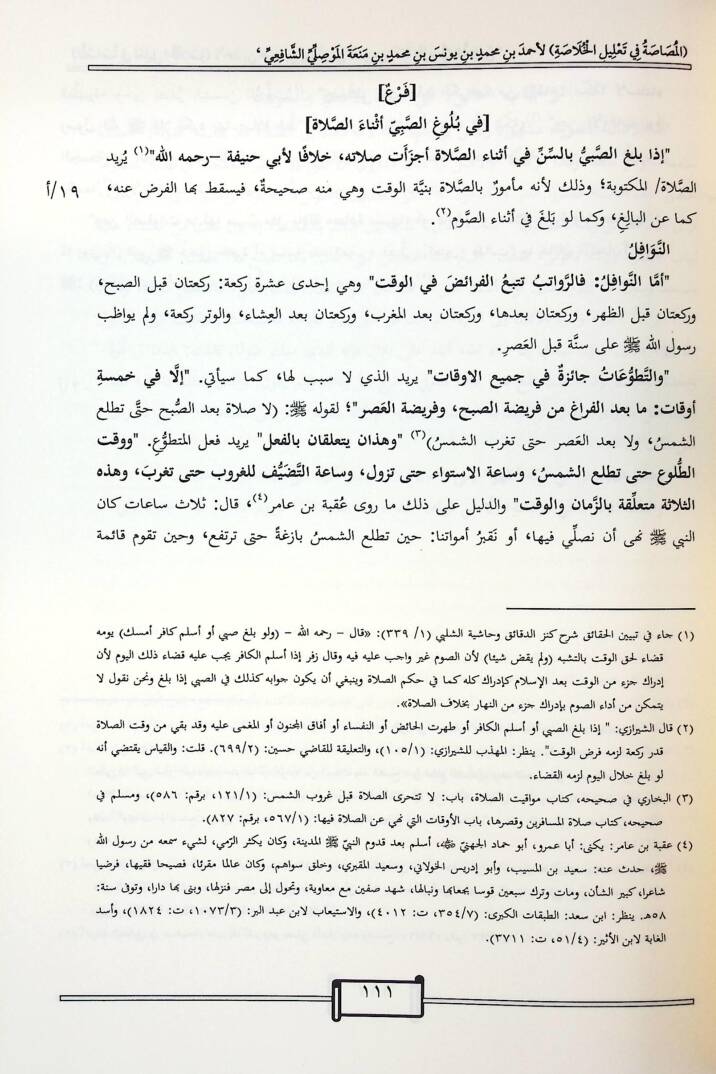 (المُصَاصَةُ فِي تَعْلِيلِ الخُلَاصَةِ) لأحمدَ بنِ محمدِ بنِ يونسَ بنِ محمدِ بنِ مَنَعَةَ المَوْصِلِيِّ الشَّافِعِيِّ،
[فَرْعٌ]
[في بُلُوغِ الصَّبِيِّ أثناءَ الصَّلاة]
"إذا بلغ الصَّبيُّ بالسِّنِّ في أثناء الصَّلاة أجزَأَت صلاته، خلافًا لأبي حنيفة –رحمه الله"(١) يُريد
الصَّلاة/ المكتوبة؛ وذلك لأنه مأمورٌ بالصَّلاة بنيَّة الوقت وهي منه صحيحةٌ، فيسقط بها الفرض عنه، ١٩/أ
كما عن البالِغِ، وكما لو بَلَغَ في أثناء الصَّوم(٢).
النَّوَافِلُ
"أمَّا النَّوافِلُ: فالرَّواتبُ تتبعُ الفرائضَ في الوقت" وهي إحدى عشرة ركعة: ركعتان قبل الصبح،
وركعتان قبل الظهر، وركعتان بعدها، وركعتان بعد المغرب، وركعتان بعد العِشاء، والوتر ركعة، ولم يواظب
رسول الله ﷺ على سنَّة قبل العَصرِ.
"والتَّطوُّعَات جائزةٌ في جميع الاوقات" يريد الذي لا سبب لها، كما سيأتي. "إلَّا في خمسةِ
أوقات: ما بعد الفراغ من فريضة الصبح، وفريضة العصر"؛ لقوله ﷺ: (لا صلاة بعد الصُّبح حتَّى تطلع
الشمسُ، ولا بعد العَصر حتى تغرب الشمسُ)(٣) "وهذان يتعلقان بالفعل" يريد فعل المتطوُّعِ. "ووقت
الطُّلوع حتى تطلع الشمسُ، وساعة الاستواء حتى تزول، وساعة التَّضَيُّف للغروب حتى تغربَ، وهذه
الثلاثة متعلِّقة بالزَّمان والوقت" والدليل على ذلك ما روى عُقبة بن عامر(٤)، قال: ثلاث ساعات كان
النبي ﷺ نهى أن نصلِّي فيها، أو نَقبرُ أمواتنا: حين تطلع الشمسُ بازغةً حتى ترتفع، وحين تقوم قائمة
(١) جاء في تبيين الحقائق شرح كنز الدقائق وحاشية الشلبي (١/ ٣٣٩): «قال – رحمه الله – (ولو بلغ صبي أو أسلم كافر أمسك) يومه
قضاء لحق الوقت بالتشبه (ولم يقض شيئا) لأن الصوم غير واجب عليه فيه وقال زفر إذا أسلم الكافر يجب عليه قضاء ذلك اليوم لأن
إدراك جزء من الوقت بعد الإسلام كإدراك كله كما في حكم الصلاة وينبغي أن يكون جوابه كذلك في الصبي إذا بلغ ونحن نقول لا
يتمكن من أداء الصوم بإدراك جزء من النهار بخلاف الصلاة».
(٢) قال الشيرازي: " إذا بلغ الصبي أو أسلم الكافر أو طهرت الحائض أو النفساء أو أفاق المجنون أو المغمى عليه وقد بقي من وقت الصلاة
قدر ركعة لزمه فرض الوقت". ينظر: المهذب للشيرازي: (١/ ١٠٥)، والتعليقة للقاضي حسين: (٢/ ٦٩٩). قلت: والقياس يقتضي أنه
لو بلغ خلال اليوم لزمه القضاء.
(٣) البخاري في صحيحه، كتاب مواقيت الصلاة، باب: لا تتحرى الصلاة قبل غروب الشمس: (١/ ١٢١، برقم: ٥٨٦)، ومسلم في
صحيحه، كتاب صلاة المسافرين وقصرها، باب الأوقات التي نهي عن الصلاة فيها: (١/ ٥٦٧، برقم: ٨٢٧).
(٤) عقبة بن عامر: يكنى: أبا عمرو، أبو حماد الجهنيّ ﷺ، أسلم بعد قدوم النبيّ ﷺ المدينة، وكان يكثر الرّمي، لشيء سمعه من رسول الله
ﷺ، حدث عنه: سعيد بن المسيب، وأبو إدريس الخولاني، وسعيد المقبري، وخلق سواهم، وكان عالما مقرئا، فصيحا فقيها، فرضيا
شاعرا، كبير الشأن، ومات وترك سبعين قوسا بجعابها ونبالها، شهد صفين مع معاوية، وتحول إلى مصر فنزلها، وبنى بها دارا، وتوفى سنة:
٥٨هـ. ينظر: ابن سعد: الطبقات الكبرى: (٧/ ٣٥٤، ت: ٤٠١٢)، والاستيعاب لابن عبد البر: (٣/ ١٠٧٣، ت: ١٨٢٤)، وأسد
الغابة لابن الأثير: (٤/ ٥١، ت: ٣٧١١).
١١١